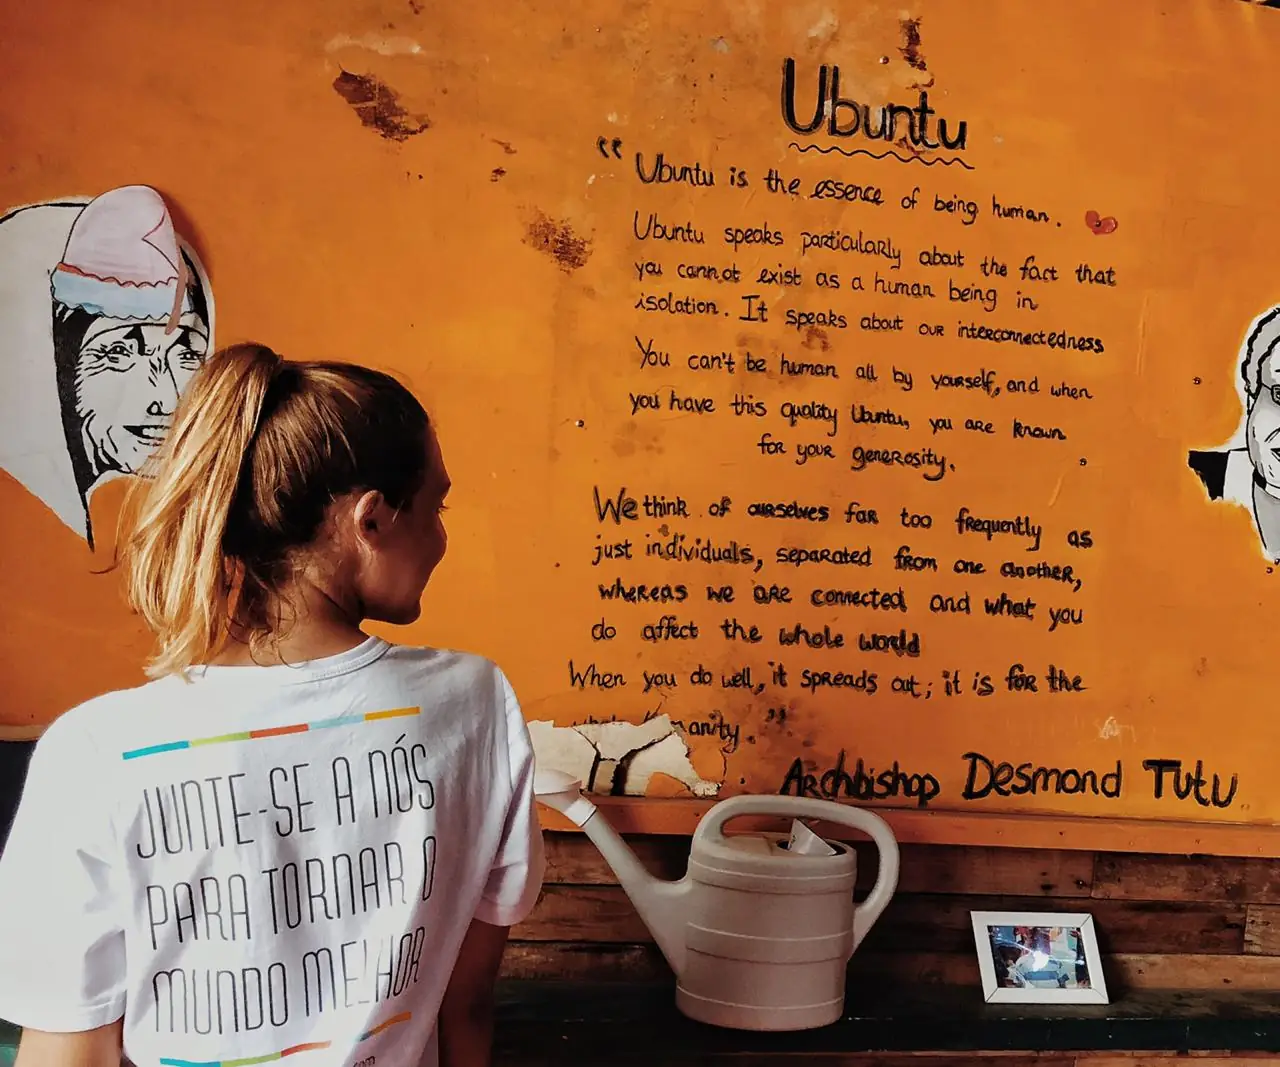 Ubuntu
“ Ubuntu is the essence of being human.
Ubuntu speaks particularly about the fact that
you cannot exist as a human being in
isolation. It speaks about our interconnectedness
You can't be human all by yourself, and when
you have this quality Ubuntu, you are known
for your generosity.
We think of ourselves far too frequently as
just individuals, separated from one another,
whereas we are connected and what you
do affect the whole world
When you do well, it spreads out; it is for the
manity. ”
Archbishop Desmond Tutu
JUNTE-SE A NÓS
PARA TORNAR O
MUNDO MELHOR
.com